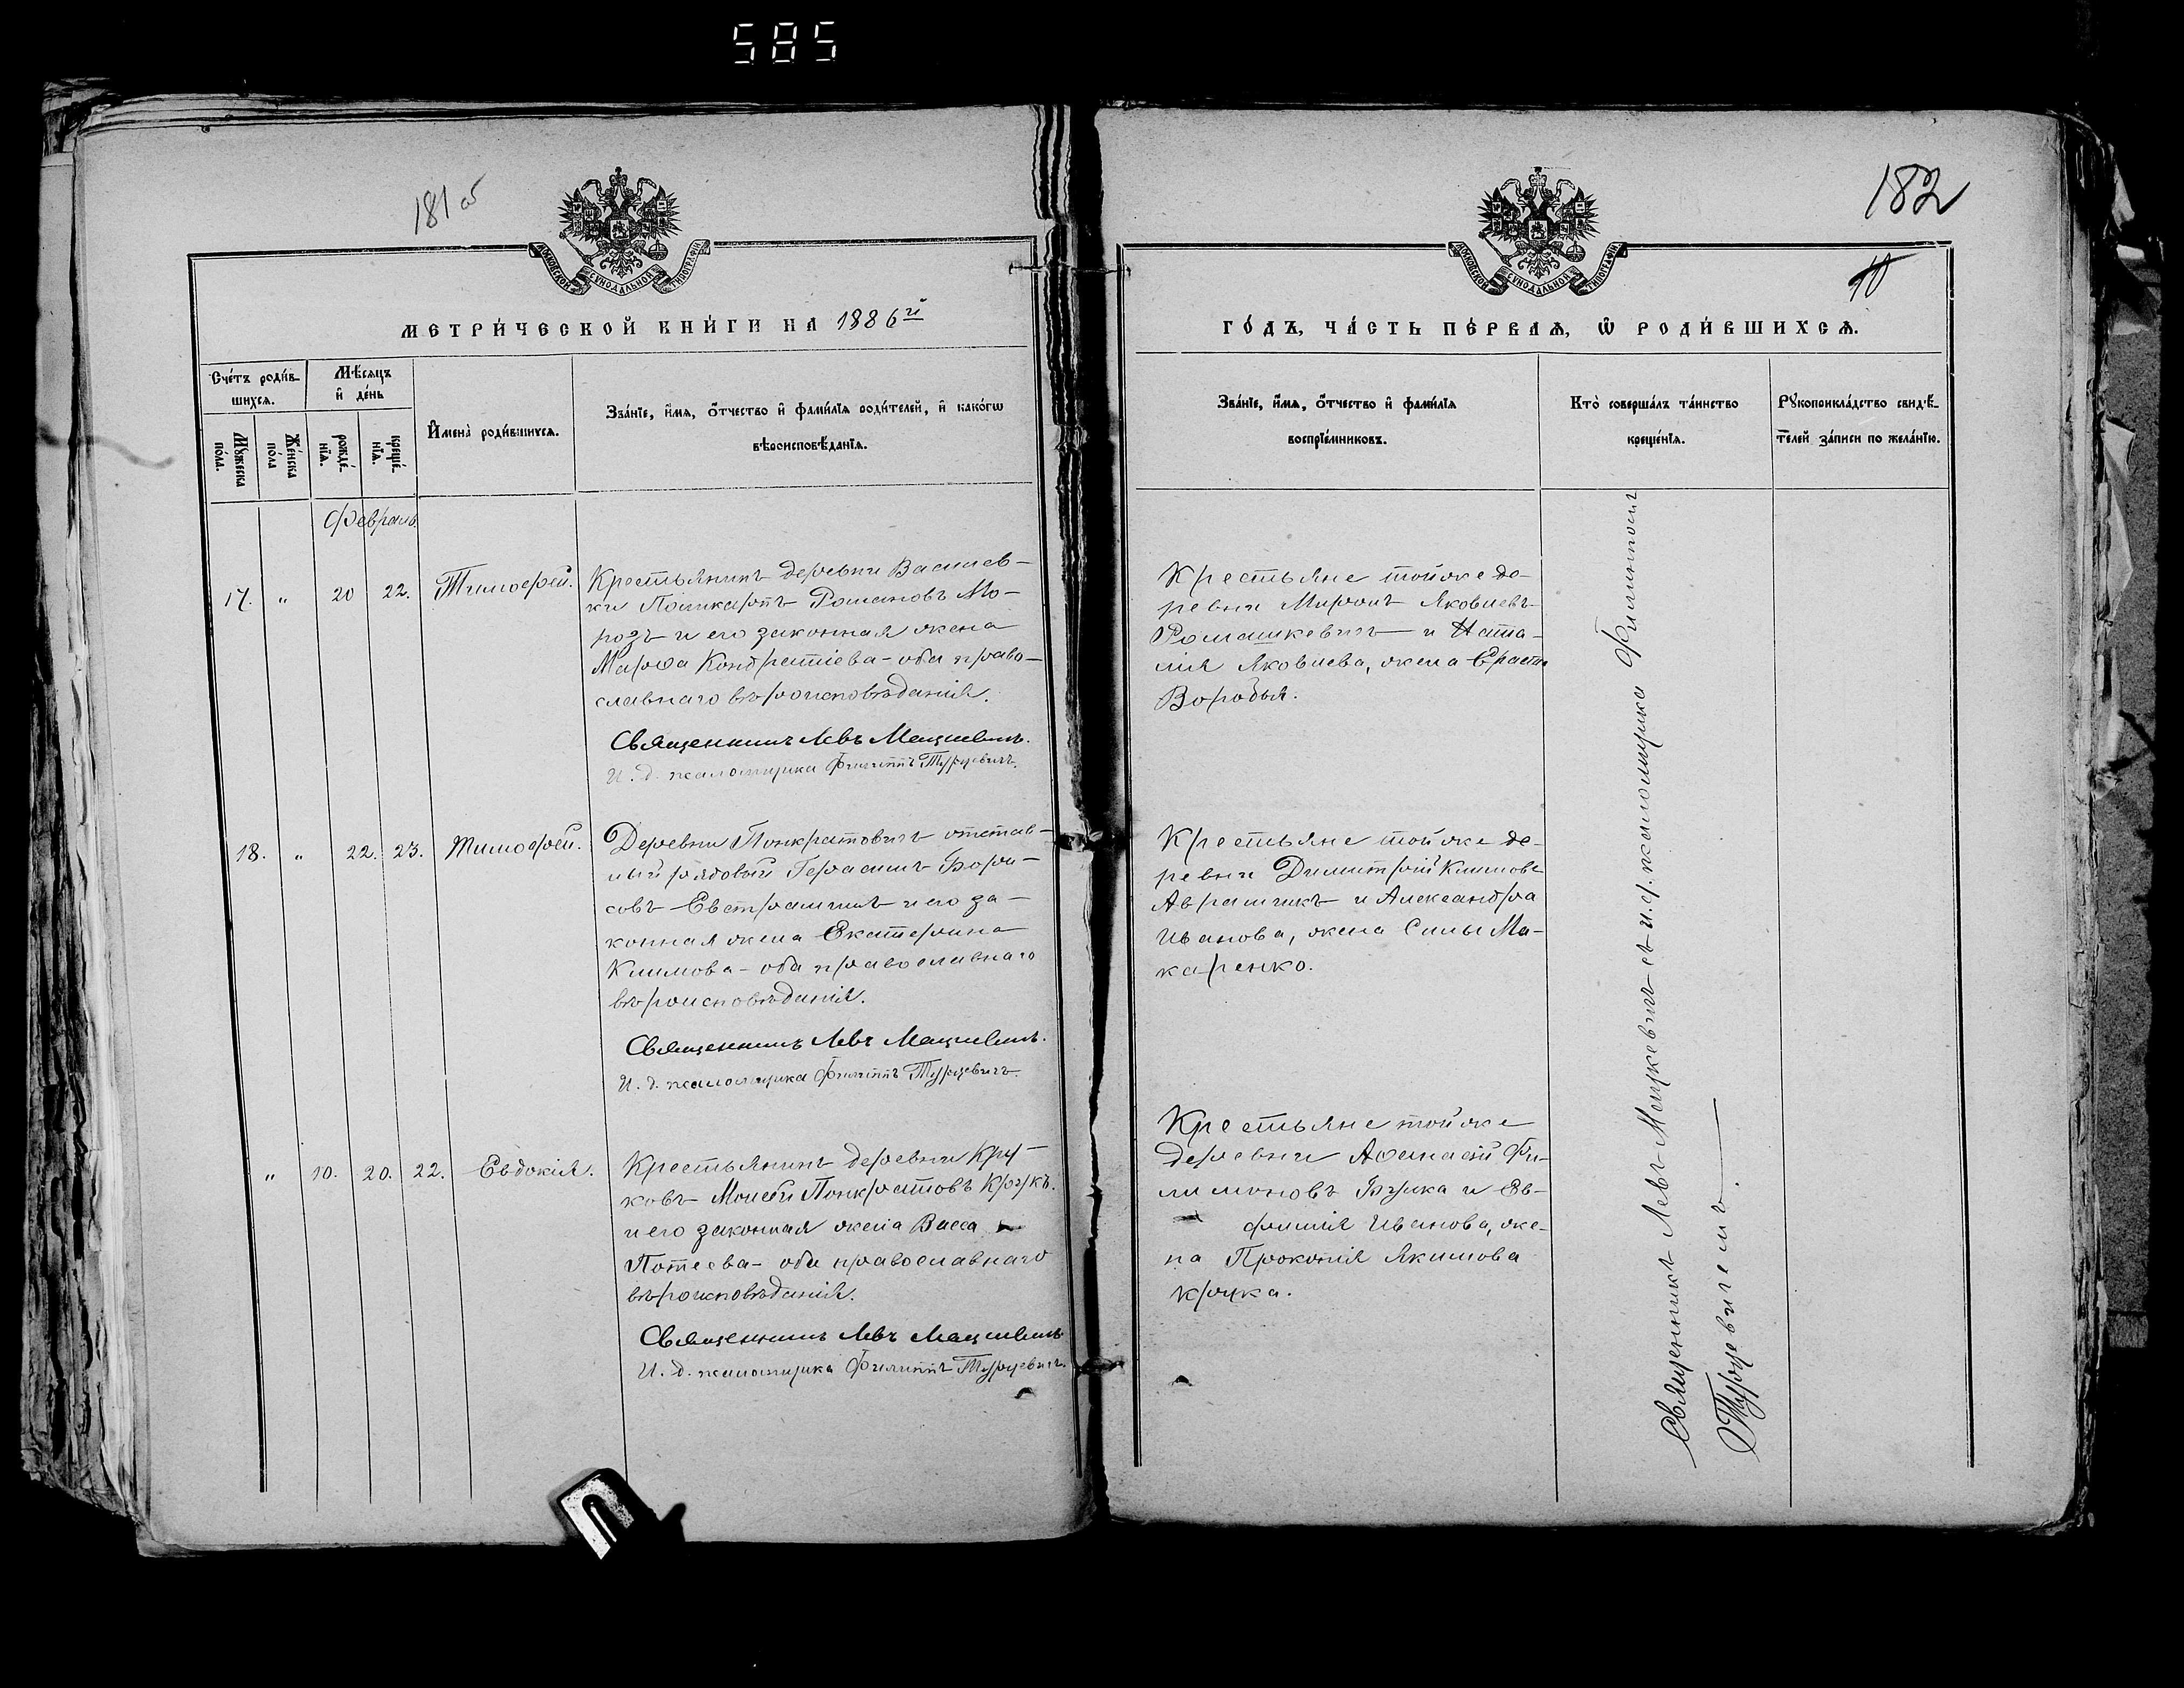 585
181 об
182
10
МОСКОВСКОЙ СУНОДАЛЬНОЙ ТИПОГРАФІИ
МОСКОВСКОЙ СУНОДАЛЬНОЙ ТИПОГРАФІИ
МЕТРИ́ЧЕСКОЙ КНИ́ГИ НА 1886й
ГО́ДЪ, ЧА́СТЬ ПЕ́РВАѦ, Ѡ҆ РОДИ́ВШИХСѦ.
Сче́тъ роди́в-
шихсѧ.
Мꙋ́жеска
по́ла.
Же́нска
по́ла
Мѣ́сѧцъ
и҆ де́нь
рожде́-
нїѧ.
креще́-
нїѧ.
И҆мена̀ роди́вшихсѧ.
Зва́нїе, и҆́мѧ, ѻ҆́тчество и҆ фами́лїѧ роди́телей, и҆ како́гѡ
вѣроисповѣ́данїѧ.
Зва́нїе, и҆́мѧ, ѻ҆́тчество и҆ фами́лїѧ
воспрїе́мниковъ.
Кто̀ соверша́лъ та́инство
креще́нїѧ.
Рꙋкоприкла́дство свидѣ́-
телей за́писи по жела́нїю.
Февраль
17. " 20 22. Тимофей.
Крестьянинъ деревни Васılев-
ки Поликарпъ Романовъ Мо-
розъ и его законная жена
Марѳа Кондратіева - оба право-
славнаго вѣроисповѣданія.
Священникъ Левъ Мацкевичъ.
И. д. псаломщика Филиппъ Турцевичъ.
Крестьяне тойже де-
ревни Миронъ Яковлевъ
Ромашкевичъ и Ната-
лія Яковлева, жена Ераста
Воробья.
18. " 22. 23. Тимофей.
Деревни Понкратовичъ отстав-
ный рядовый Герасимъ Бори-
совъ Евтрашикъ и его за-
конная жена Екатерина
Климова - оба православнаго
вѣроисповѣданія.
Священникъ Левъ Мацкевичъ.
И. д. псаломщика Филиппъ Турцевичъ.
Крестьяне тойже де-
ревни Димитрій Климовъ
Аврамчикъ и Александра
Иванова, жена Силы Ма-
каренко.
" 10. 20. 22. Евдокія.
Крестьянинъ деревни Кру-
ковъ Моисей Понкратовъ Крукъ
и его законная жена Васса
Потеева - оба православнаго
вѣроисповѣданія.
Священникъ Левъ Мацкевичъ
И. д. псаломщика Филиппъ Турцевичъ.
Крестьяне тойже
деревни Аѳанасій Фи-
лимоновъ Букка и Ев-
фимія Иванова, же-
на Прокопія Якимова
Крука.
Священникъ Левъ Мацкевичъ съ и. д. псаломщика Филиппомъ
Турцевичемъ.